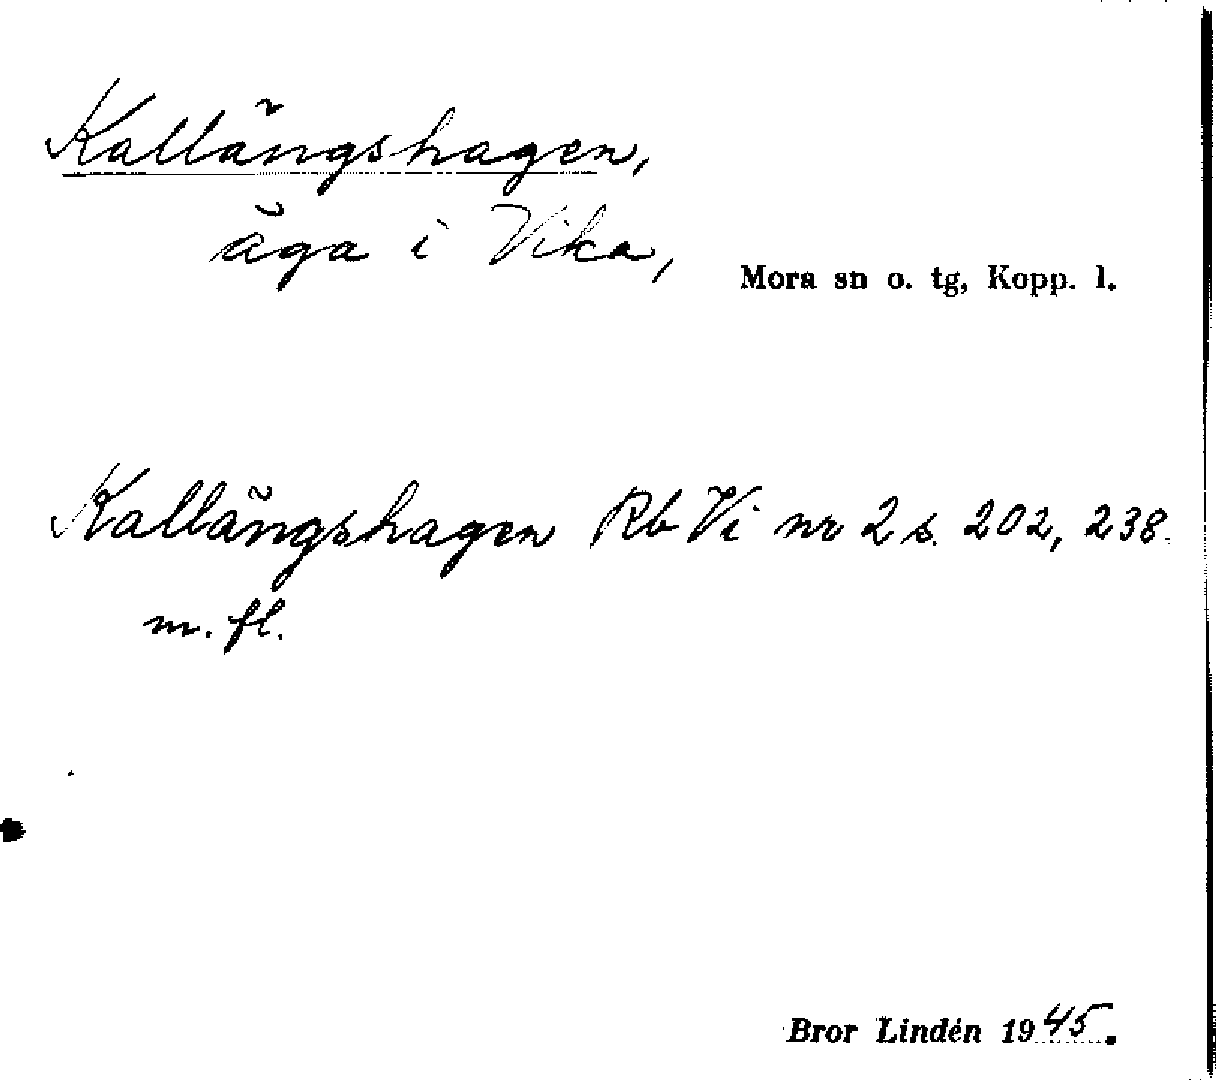 Kallängshagen,
äga i Vika,
Mora sn o. tg, Kopp. l.
Kallängshagen Rb Vi nr 2 s. 202, 238.
m. fl.
Bror Lindén 1945.